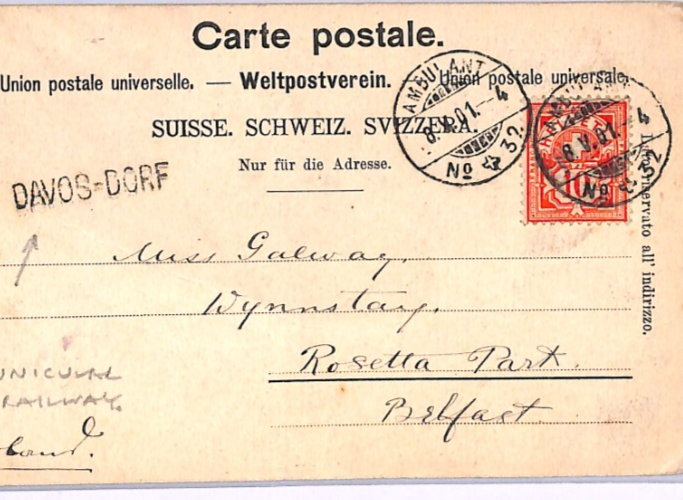 Carte postale.
Union postale universelle. — Weltpostverein. — Union postale universale
SUISSE. SCHWEIZ. SVIZZERA.
Nur für die Adresse.
AMBULANT
8.V.01.-4
No 32
AMBULANT
8.V.01.-4
No 32
10
DAVOS-DORF
riservato all' indirizzo.
Miss Galway.
Wynnstay.
Rosetta Park.
Belfast.
UNICULAL
RAILWAY.
land.